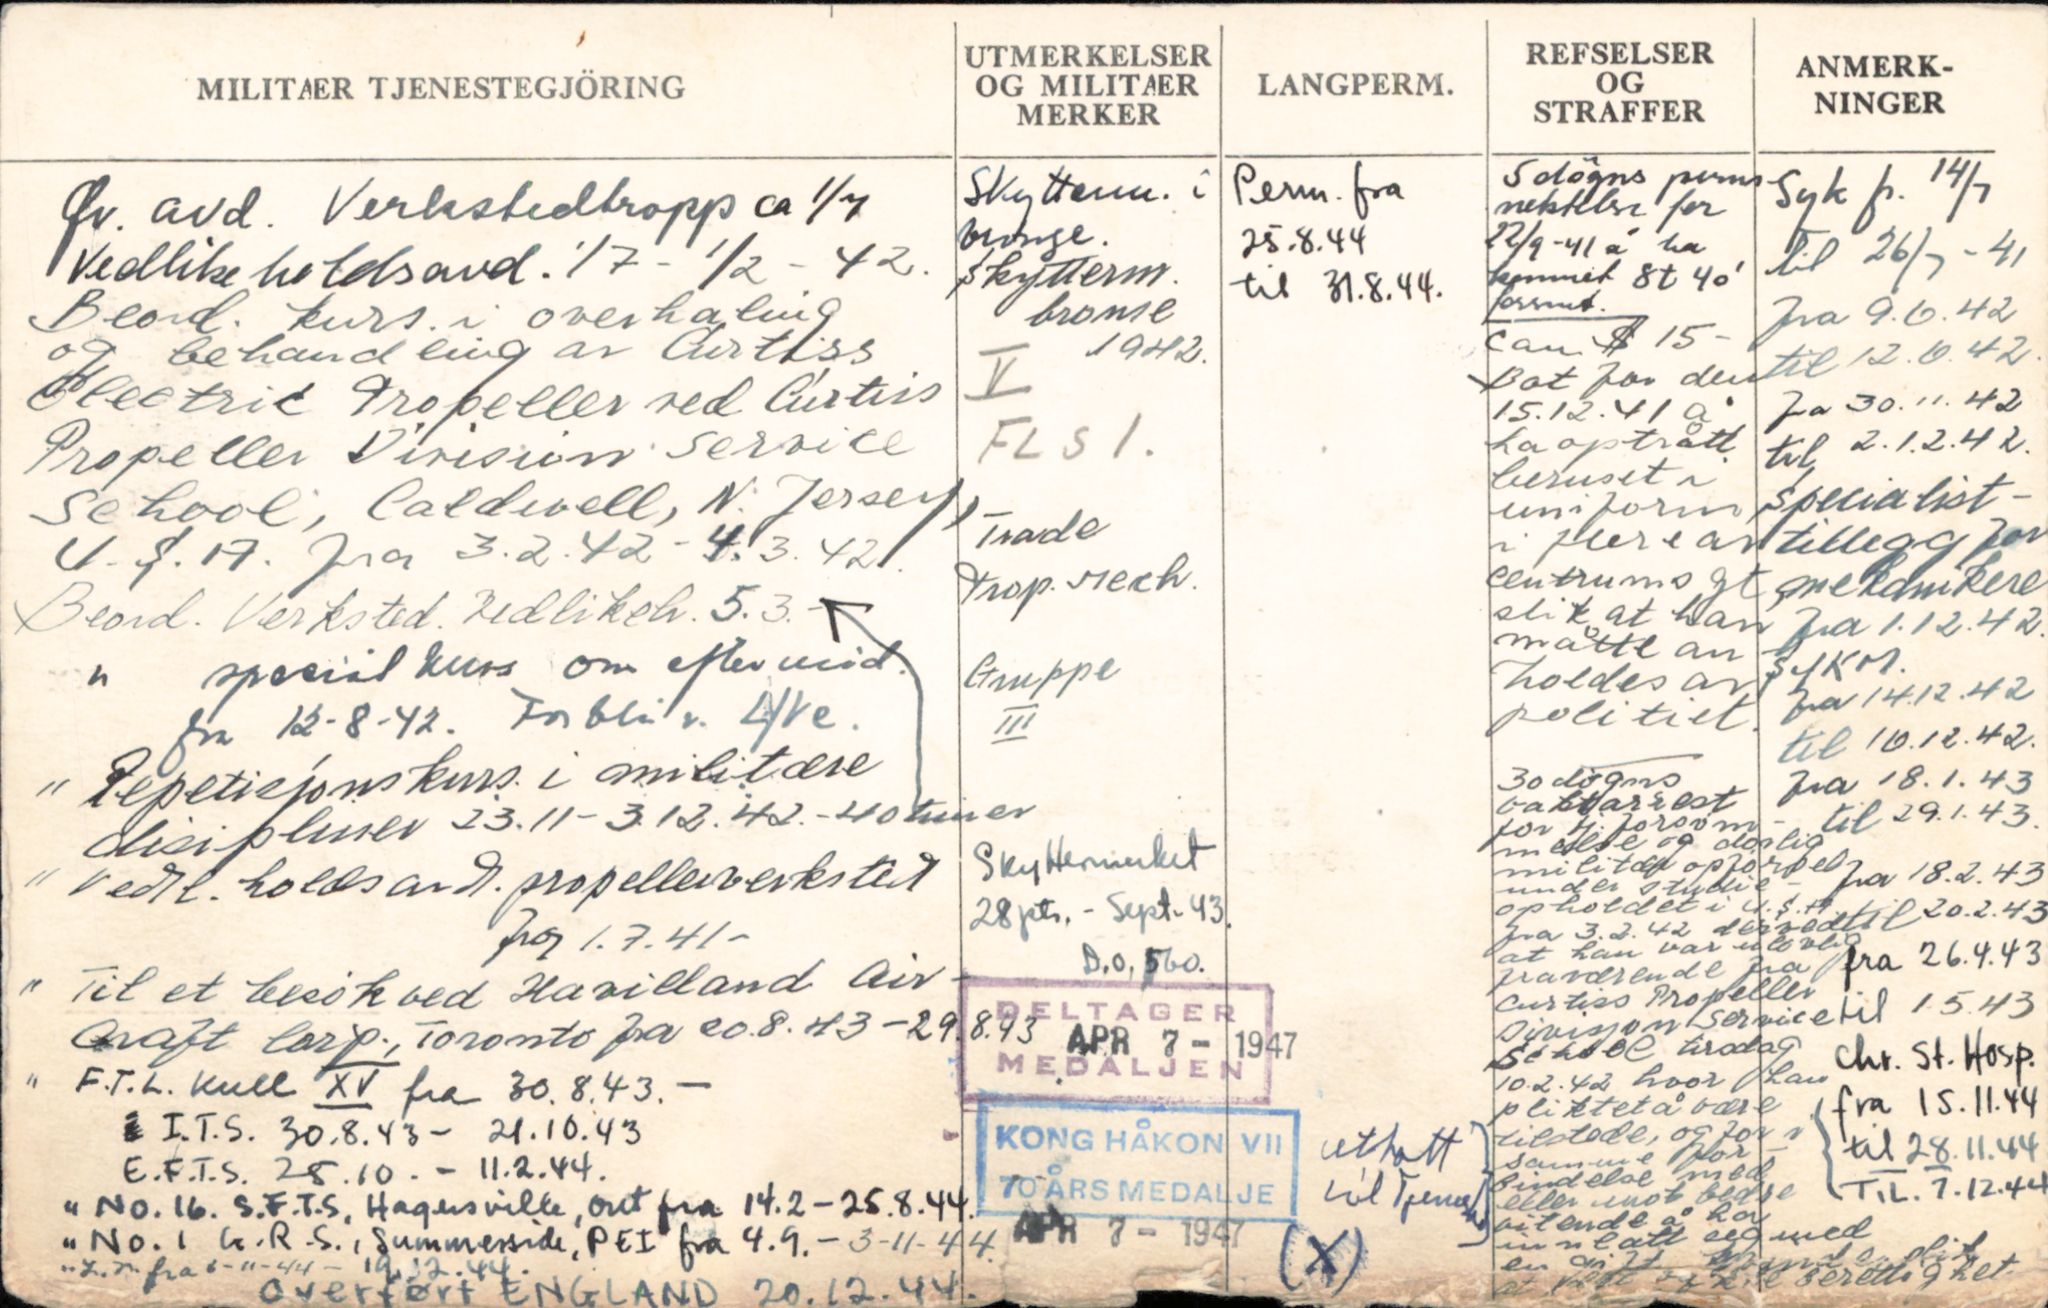 MILITÆR TJENESTEGJÖRING
Øv. avd. Verkstedtropp ca 1/7
Vedlikeholdsavd. 1/7 - 1/2 - 42.
Beord. kurs. i overhaling
og behandling av Curtiss
Electric Propeller ved Curtiss
Propeller Division Service
School, Caldwell, N. Jersey,
U.S.A. fra 3.2.42 - 4.3.42.
Beord. Verksted. Vedlikeh. 5.3.-
" special kurs om eftermid.
fra 12-8-42. Forbli v.
" Repetisjonskurs i militære
disipliner 23.11 - 3.12.42. - 40 timer
" Vedl.holdsavd. propellerverksted
fra 1.7.41 -
" Til et besök ved Havilland Air-
craft Corp., Toronto fra 20.8.43 - 29.8.43
" F.T.L. Kull XV fra 30.8.43. -
I.T.S. 30.8.43 - 21.10.43
E.F.T.S. 25.10. - 11.2.44.
" No. 16. S.F.T.S, Hagersville, Ont fra 14.2 - 25.8.44.
" No. 1 G.R.S., Summerside, PEI fra 4.9. - 3-11-44.
fra 6-11-44 - 19.12.44.
Overført ENGLAND 20.12.44.
UTMERKELSER
OG MILITÆR
MERKER
Skytterm. i
bronze.
Skytterm.
bronse
1942.
V
FLS 1.
Trade
Prop. Mech.
Gruppe
III
Skyttermerket
28 pts. - Sept. 43.
D.O. 560.
DELTAGER
APR 7 - 1947
MEDALJEN
KONG HÅKON VII
70 ÅRS MEDALJE
APR 7 - 1947
LANGPERM.
Perm. fra
25.8.44
til 31.8.44.
uthatt
til Tjeneste
(X)
REFSELSER
OG
STRAFFER
5 dögns perms
nektelse for
22/9-41 å ha
kommet 8t 40'
forsent.
Can $ 15-
Bot for den
15.12.41 å
ha opptrått
beruset i
uniform
i flere av
centrums gt
slik at han
måtte an-
holdes av
politiet.
30 dögns
vaktarrest
for tj. forsöm-
melse og dårlig
militær opförsel
under studie-
opholdet i U.S.A.
fra 3.2.42 derved
at han var ulovlig
fraværende fra
Curtiss Propeller
Division Service
School tirsdag
10.2.42 hvor han
pliktet å være
tilstede, og for i
samme for-
bindelse med
eller mot bedre
vitende å ha
innlatt seg med
ANMERK-
NINGER
Syk fr. 14/7
til 26/7 - 41
fra 9.6.42
til 12.6.42.
fra 30.11.42
til 2.12.42.
Specialist-
tillegg for
mekanikere
fra 1.12.42.
SykM.
fra 14.12.42
til 16.12.42.
fra 18.1.43
til 29.1.43.
fra 18.2.43
til 20.2.43
fra 26.4.43
til 1.5.43
Chr. St. Hosp.
fra 15.11.44
til 28.11.44
TIL. 7.12.44